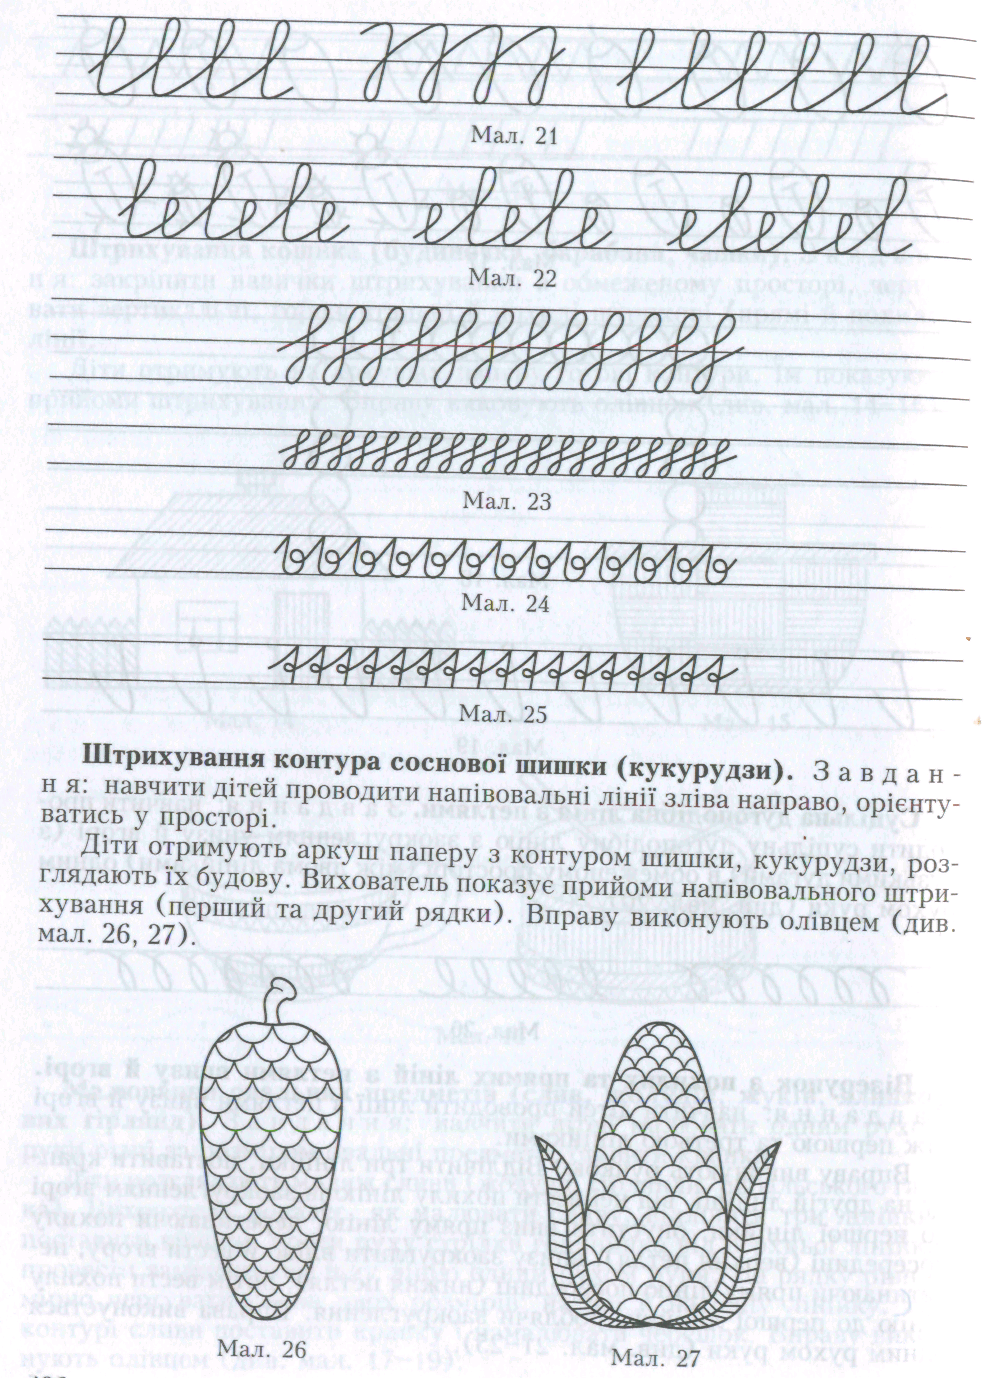 Мал. 21
Мал. 22
Мал. 23
Мал. 24
Мал. 25
Штрихування контура соснової шишки (кукурудзи). Завдан-
ня: навчити дітей проводити напівовальні лінії зліва направо, орієнту-
ватись у просторі.
Діти отримують аркуш паперу з контуром шишки, кукурудзи, роз-
глядають їх будову. Вихователь показує прийоми напівовального штри-
хування (перший та другий рядки). Вправу виконують олівцем (див.
мал. 26, 27).
Мал. 26
Мал. 27